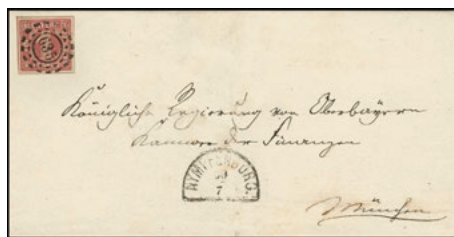 Königliche Regierung von Oberbayern
Kammer der Finanzen
NYMPHENBURG
München